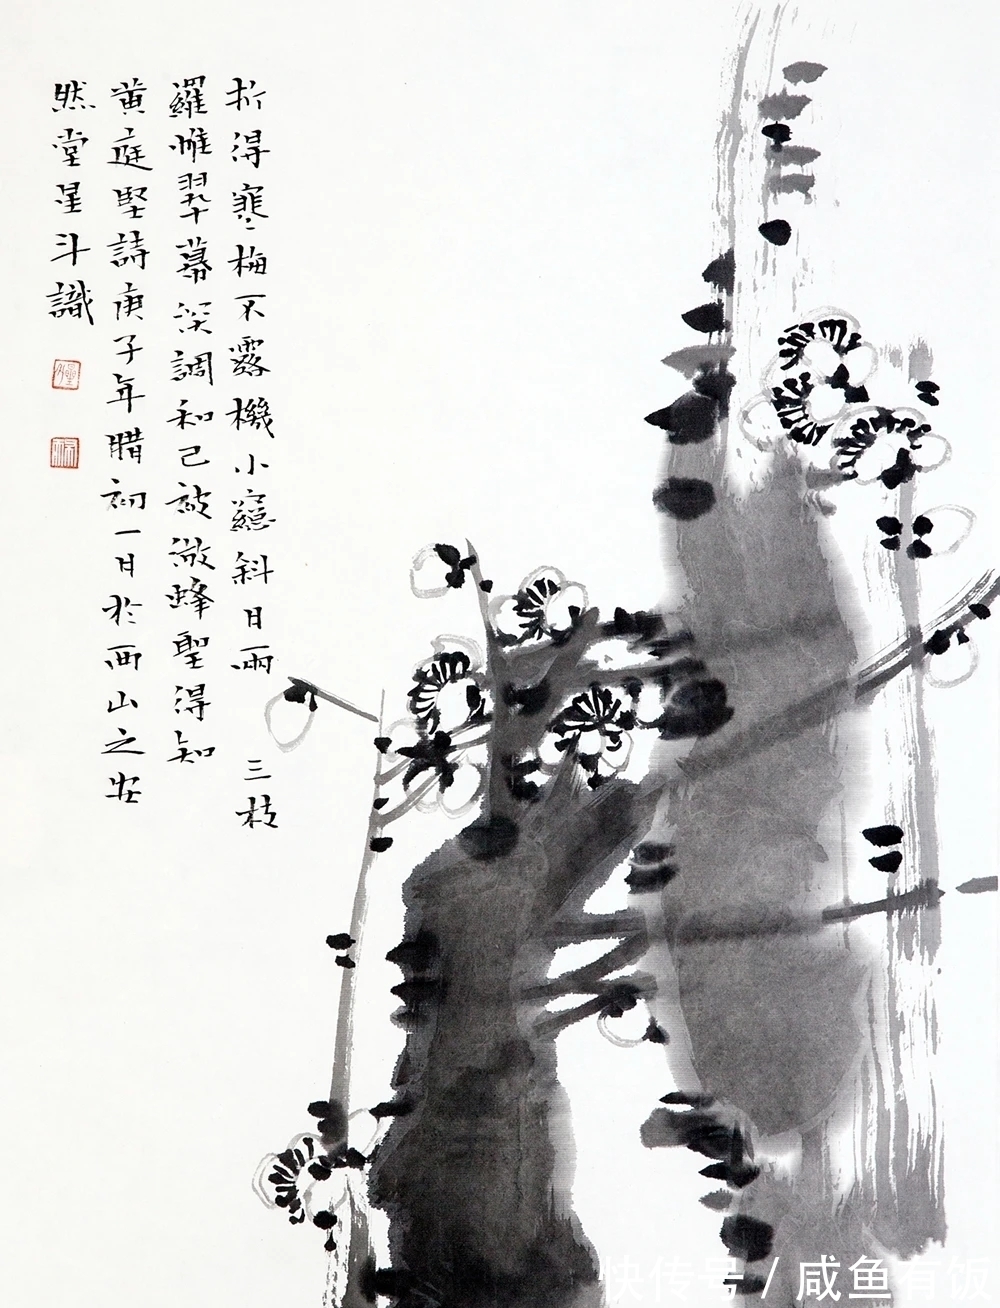 折得寒梅不露機小窗斜日兩三枝
羅帷翠幕深調和已被游蜂聖得知
黃庭堅詩庚子年腊初一日於西山之安
然堂星斗識
快传号 / 咸鱼有饭